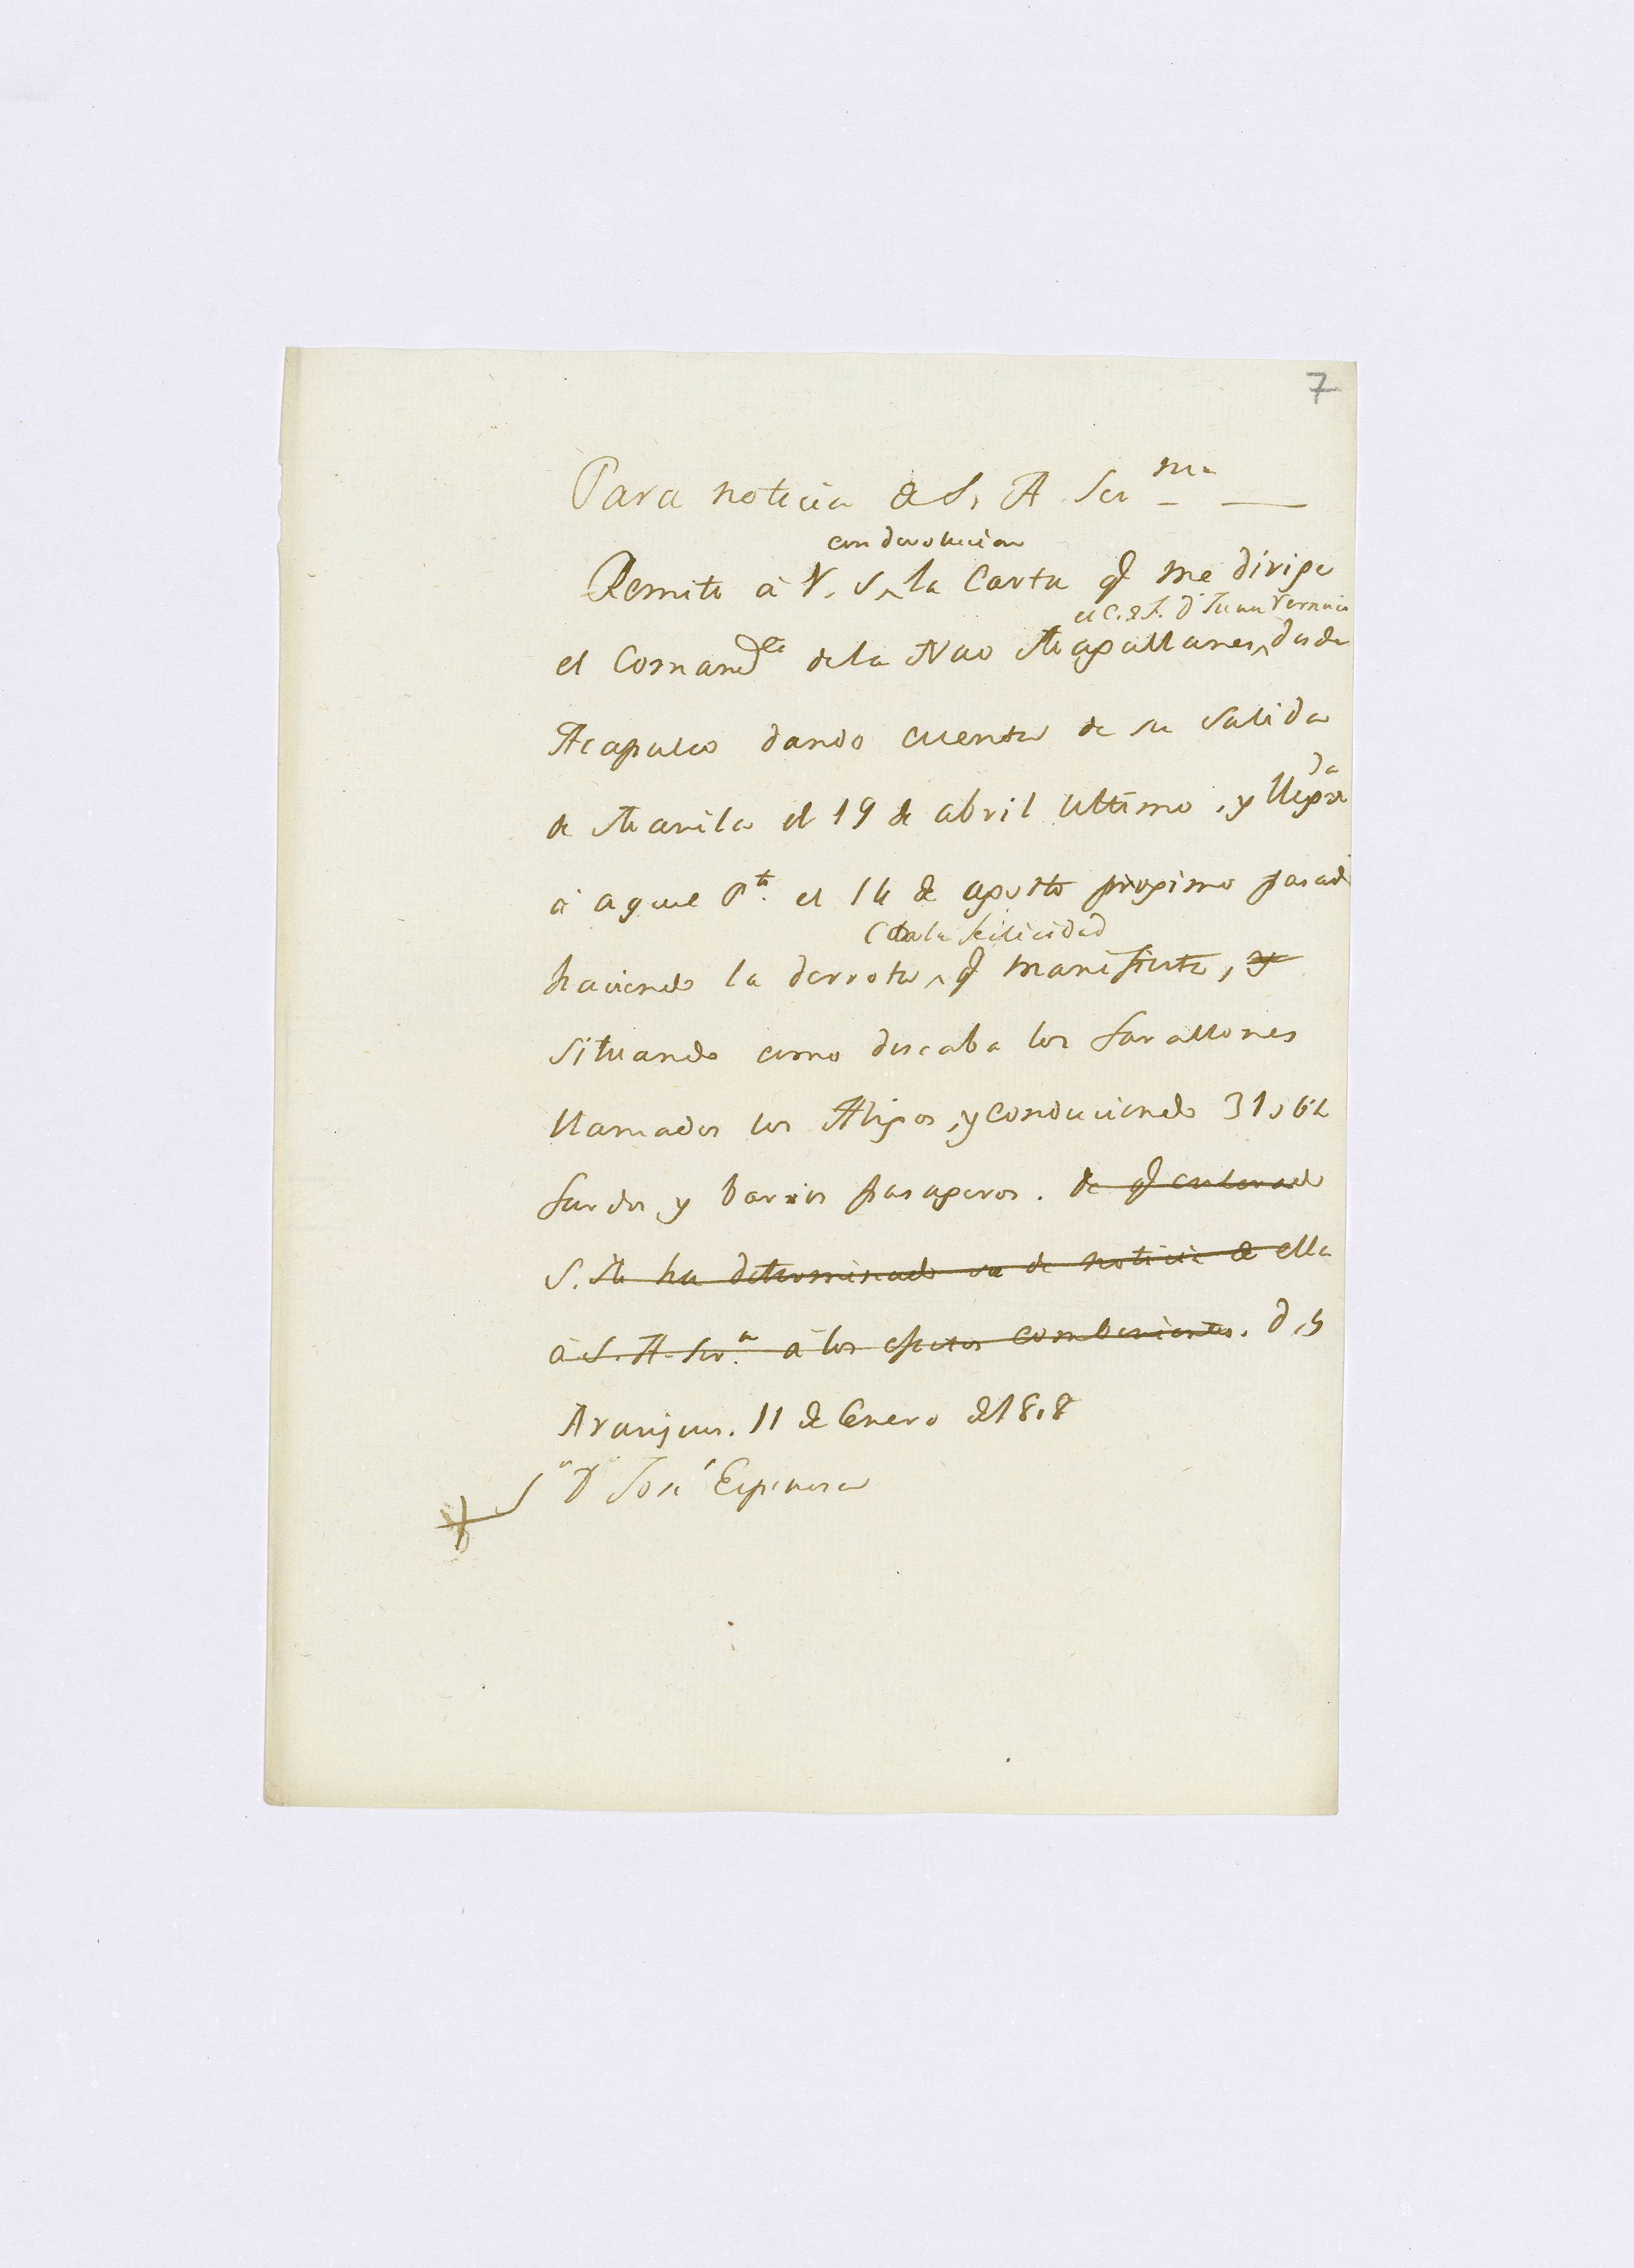 7
Para noticia de S. A. Ser.ma
con devolucion
Remito à V. S. la Carta q.e me dirige
el C. de F. D. Juan Vernaci
el Comand.te de la Nao Magallanes, desde
Acapulco dando cuenta de su salida
de Manila el 19 de abril ultimo, y llegada
à aquel P.to el 14 de agosto proximo pasado
con la felicidad
haciendo la derrota q.e manifiesta, y
situando como deseaba los farallones
llamados los Alijos, y conduciendo
fardos y barios pasageros. de q.e enterado
S. M. ha determinado se de noticia de ella
à S. A. Ser.a à los efectos combenientes. D. g.
Aranjuez. 11 de Enero de 1808
S.or D.n José Espinosa